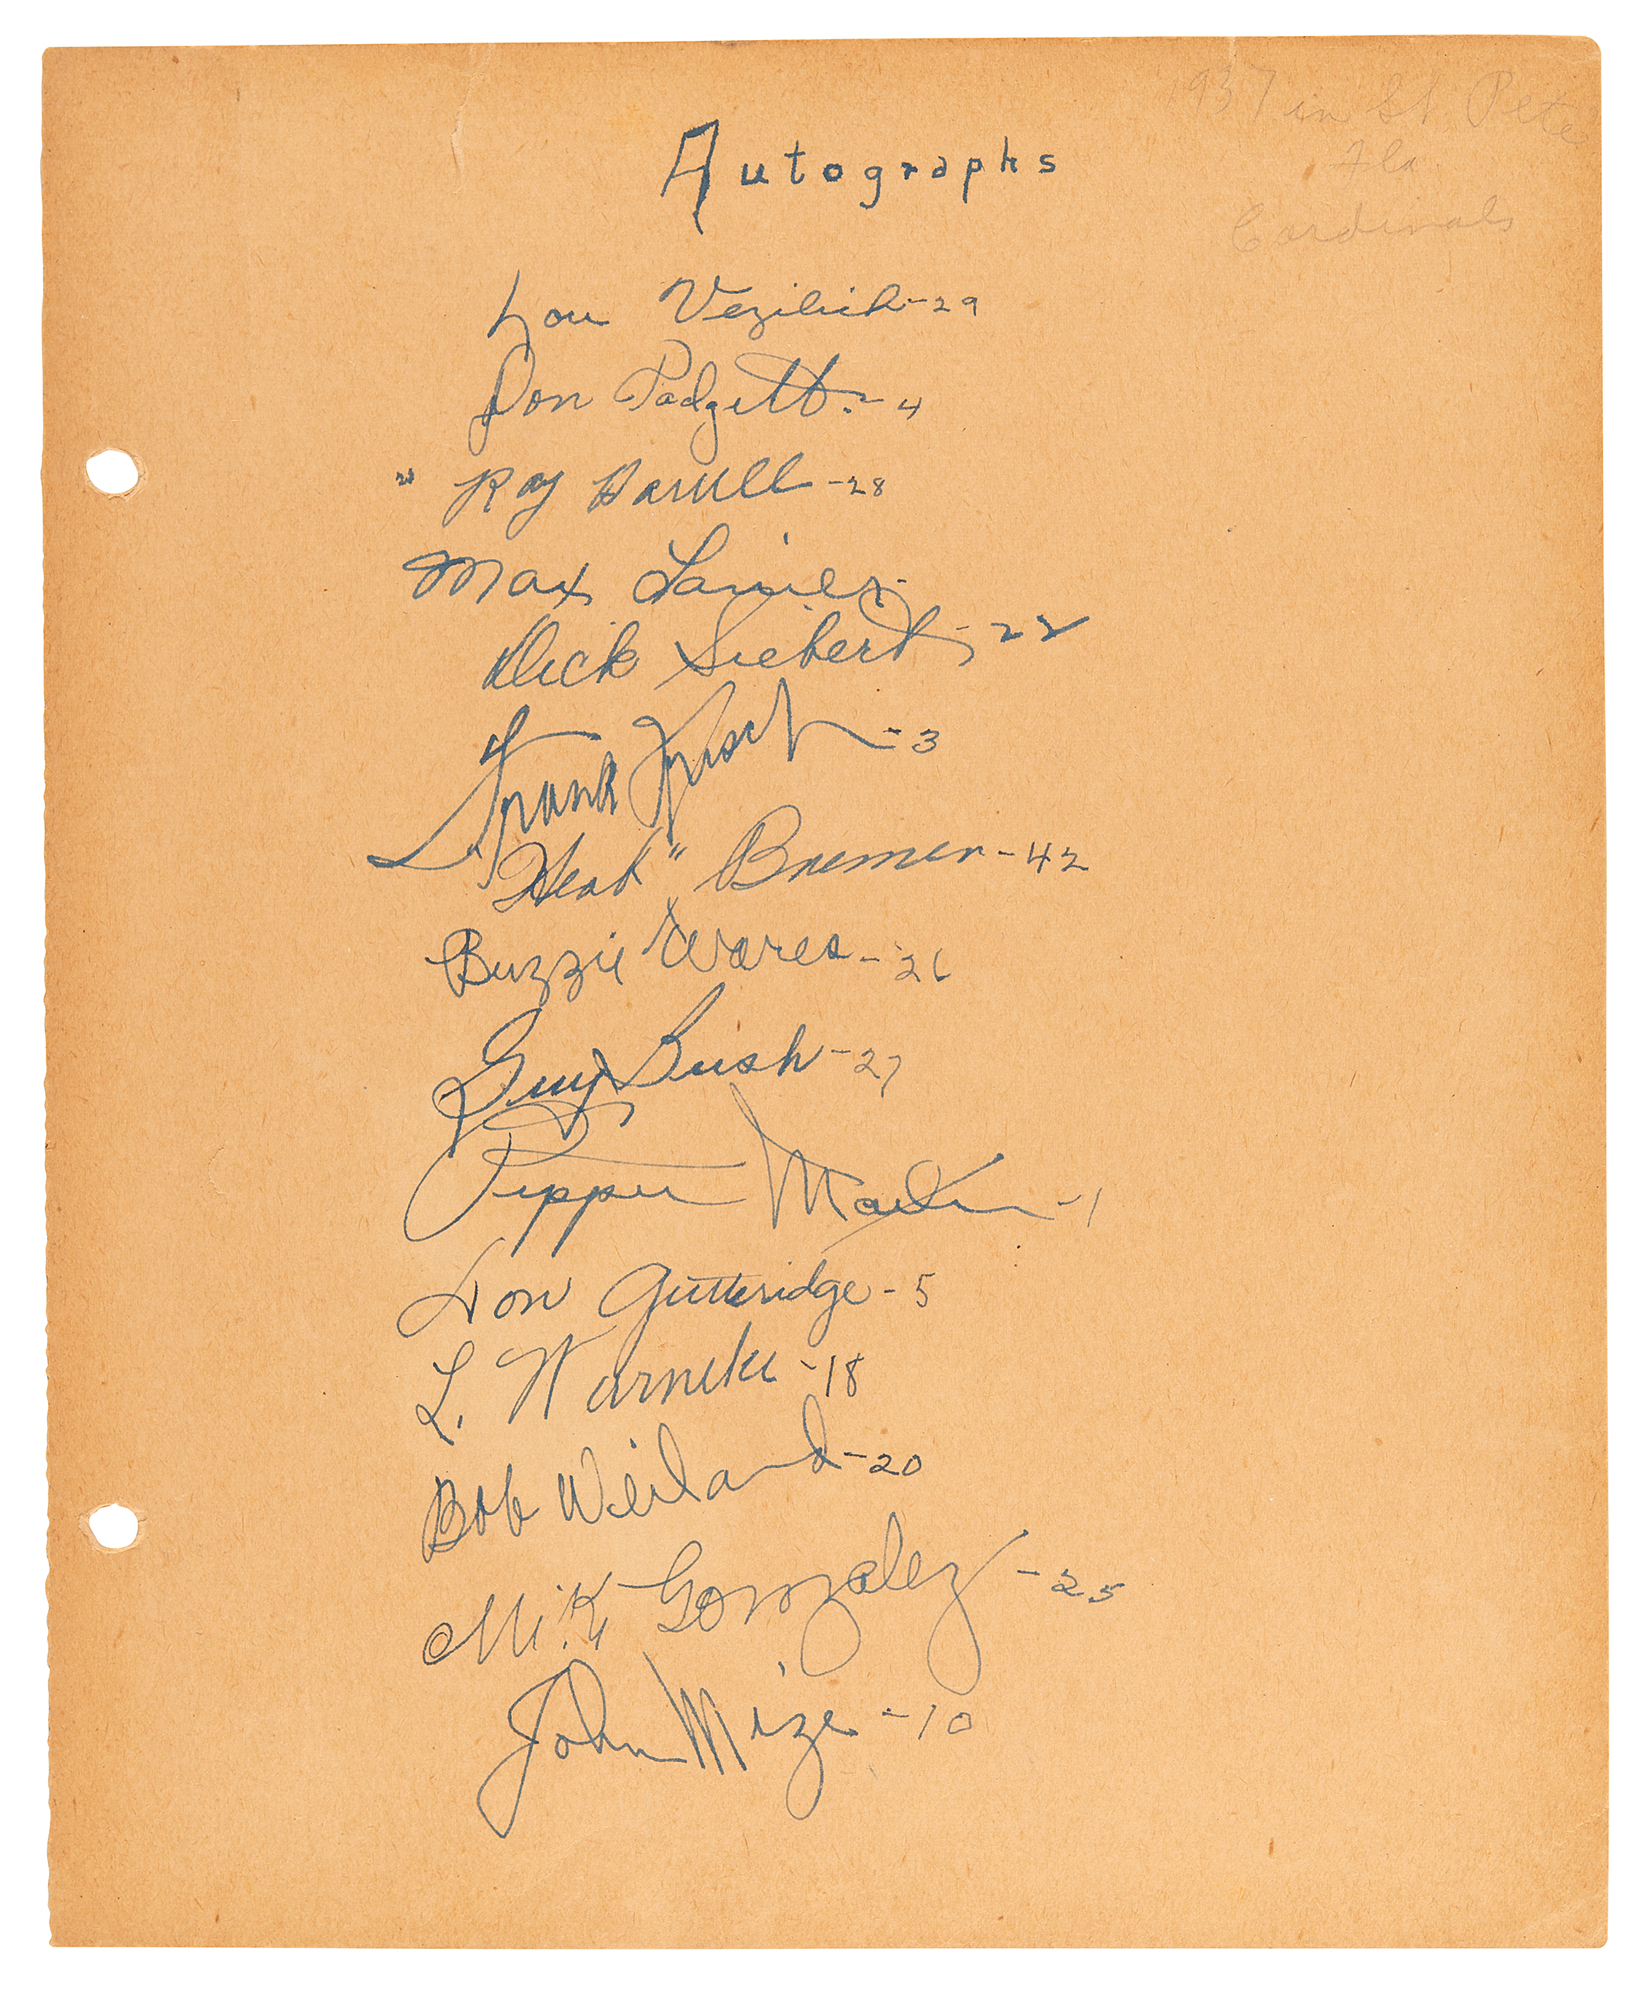 1937 in St. Pete
Fla
Cardinals
Autographs
Lou Vezilich - 29
Don Padgett. - 4
" Ray Harrell - 28
Max Lanier
Dick Siebert - 22
Frank Frisch - 3
"Herb" Bremer - 42
Buzzie Wares - 26
Guy Bush - 27
Pepper Martin - 1
Don Gutteridge - 5
L. Warneke - 18
Bob Weiland - 20
Mike Gonzalez - 25
John Mize - 10